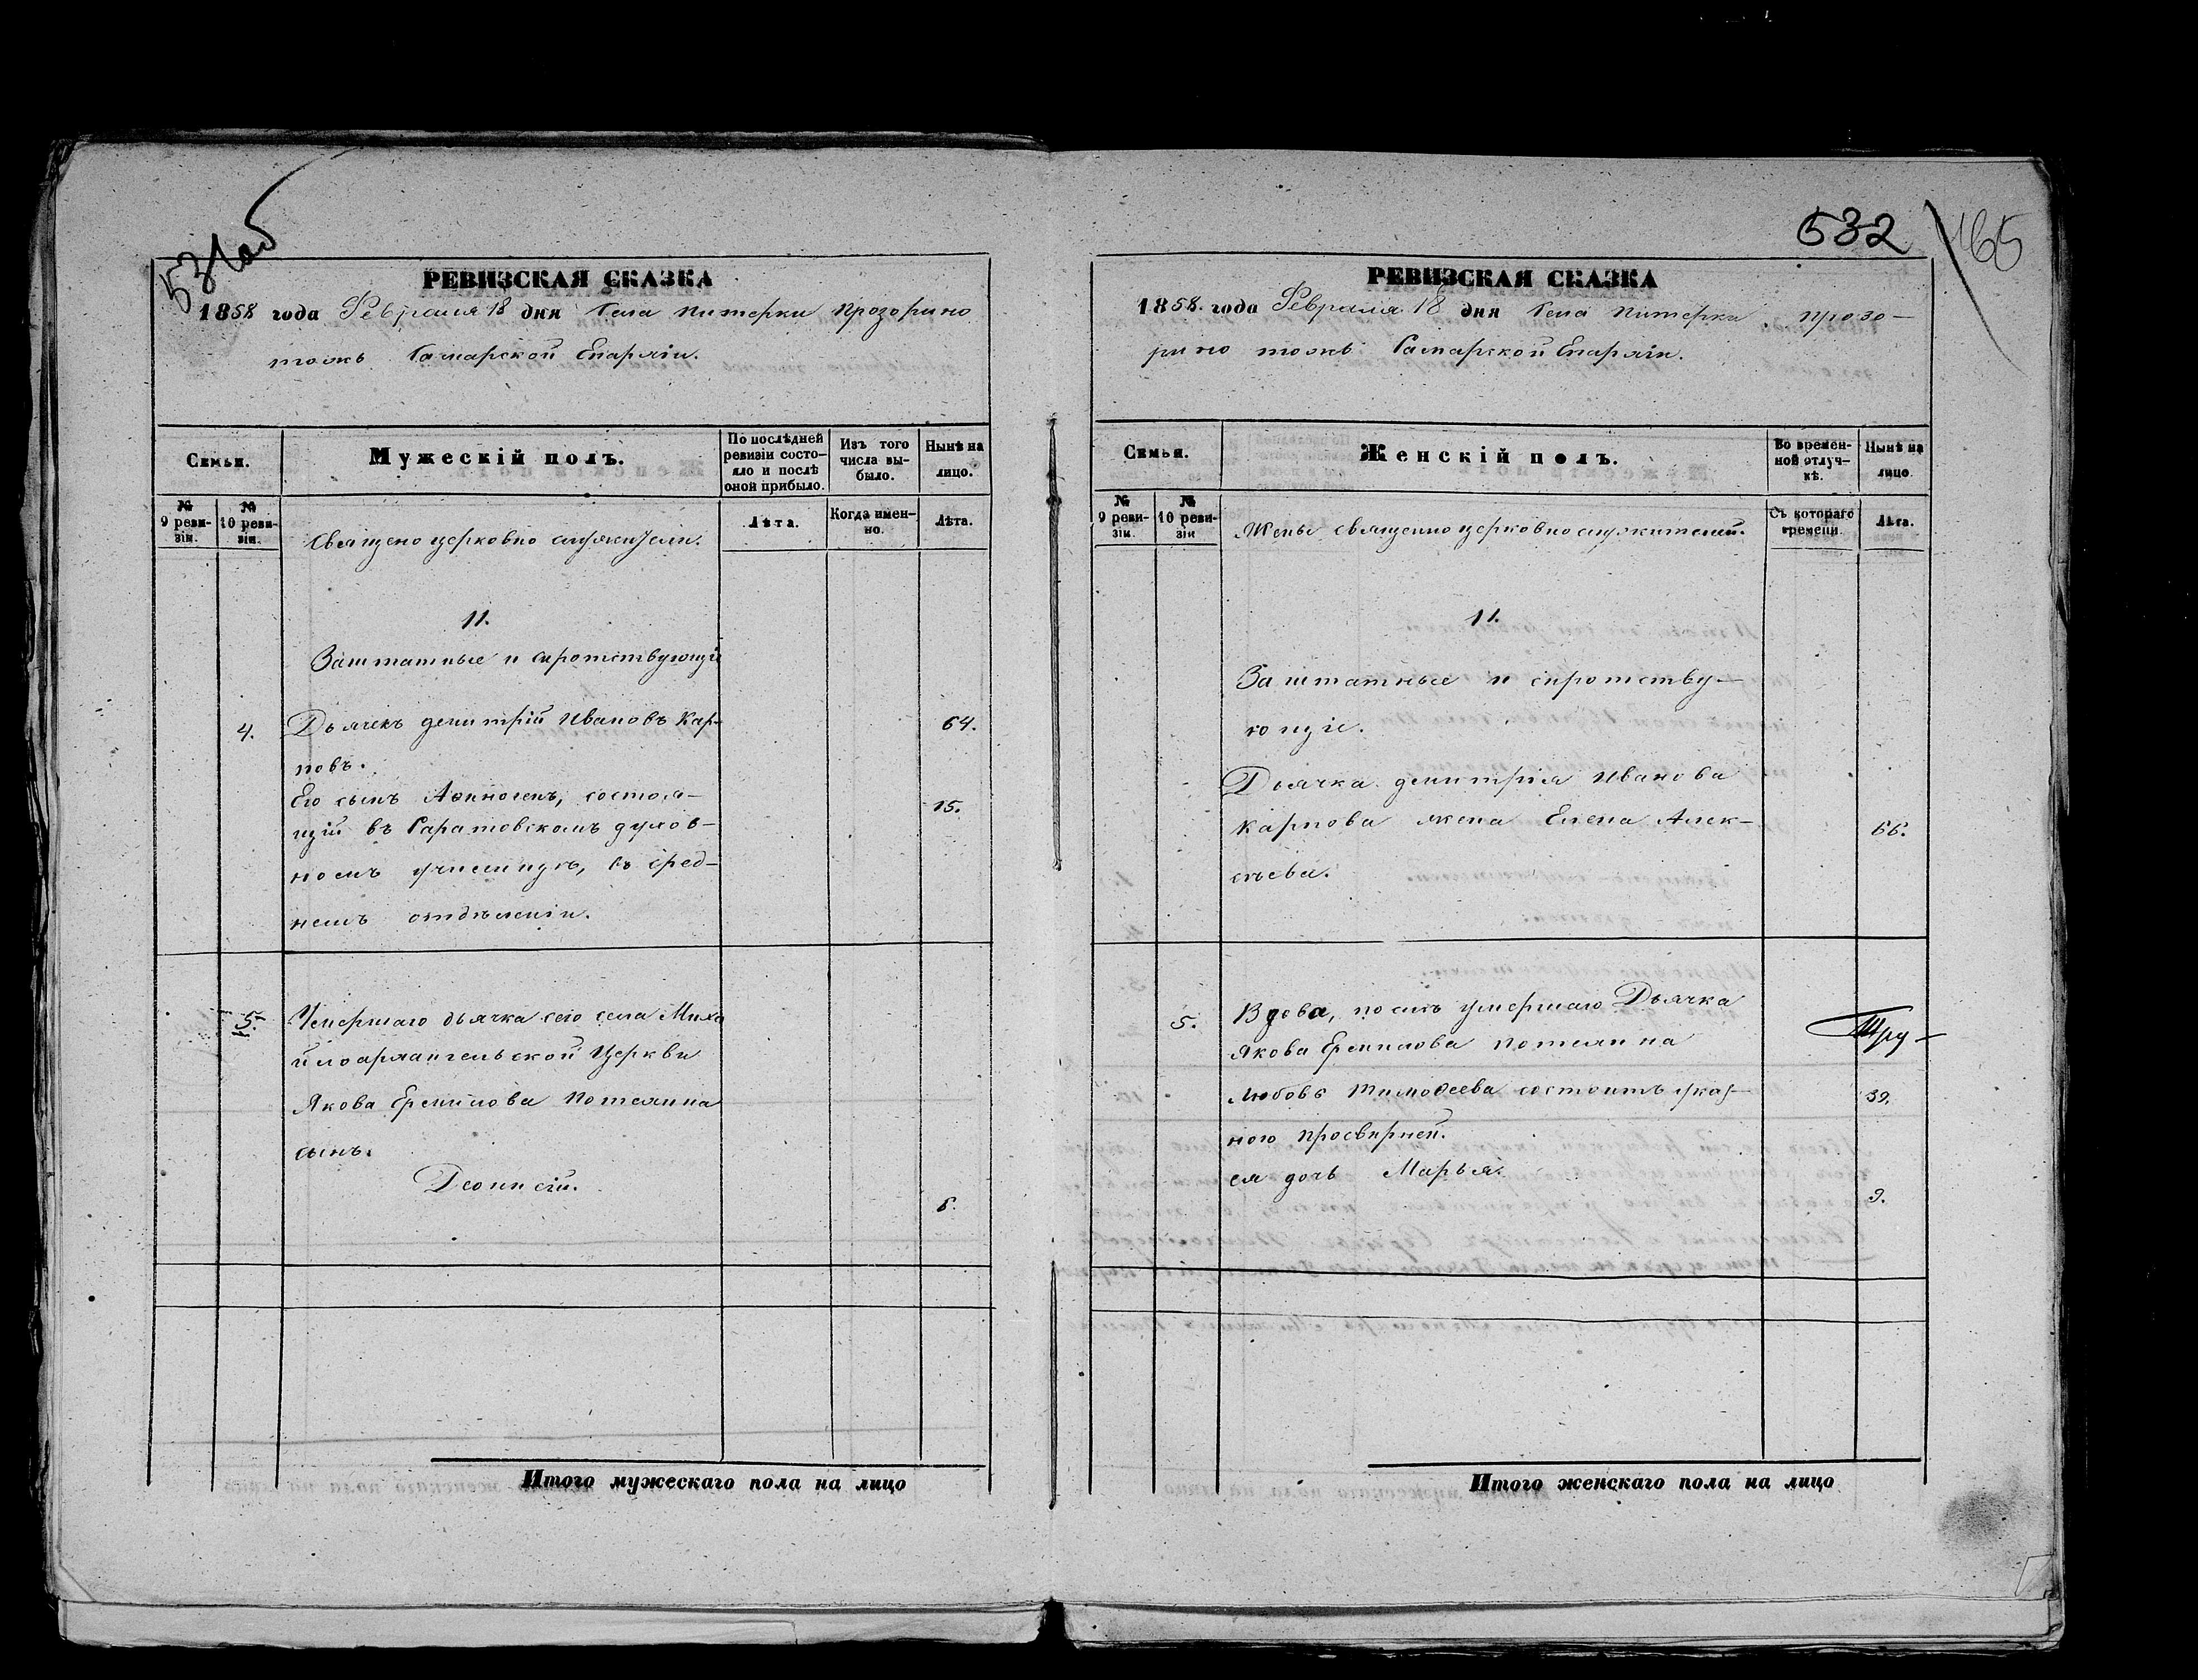 531об
РЕВИЗСКАЯ СКАЗКА
1858 года Февраля 18 дня Села Питерки Прозорино
тожъ Самарской Епархіи.
Семьи.
Мужескій полъ.
По послѣдней ревизіи состояло и послѣ оной прибыло.
Изъ того числа выбыло.
Нынѣ на лицо.
№ 9 ревизіи.
№ 10 ревизіи.
Священо церковно служители.
Лѣта.
Когда именно.
Лѣта.
11.
Заштатные и сиротствующіе
4. Дьячекъ Димитрій Ивановъ Кар- 64.
повъ.
Его сынъ Аѳиногенъ, состоя- 15.
щій въ Саратовскомъ духов-
номъ училищѣ, въ сред-
немъ отдѣленіи.
5. Умершаго дьячка сего села Миха
йлоархангельской Церкви
Якова Ермилова Потехина
сынъ.
Діонисій. 6.
Итого мужескаго пола на лицо
532
165
РЕВИЗСКАЯ СКАЗКА
1858. года Февраля 18 дня Села Питерки Прозо-
рино тожъ Самарской Епархіи.
Семьи.
Женскій полъ.
Во временной отлучкѣ.
Нынѣ на лицо.
№ 9 ревизіи.
№ 10 ревизіи
Жены священно церковнослужителей.
Съ котораго времени.
Лѣта.
11.
Заштатные и сиротству-
ющіе.
Дьячка Димитрія Иванова
Карпова жена Елена Алек- 66.
сѣева.
5. Вдова, послѣ умершаго Дьячка
Якова Ермилова Потехина
Любовь Тимоѳеева состоитъ указ- 39.
ною просвирней.
ея дочь Марья. 9.
Итого женскаго пола на лицо